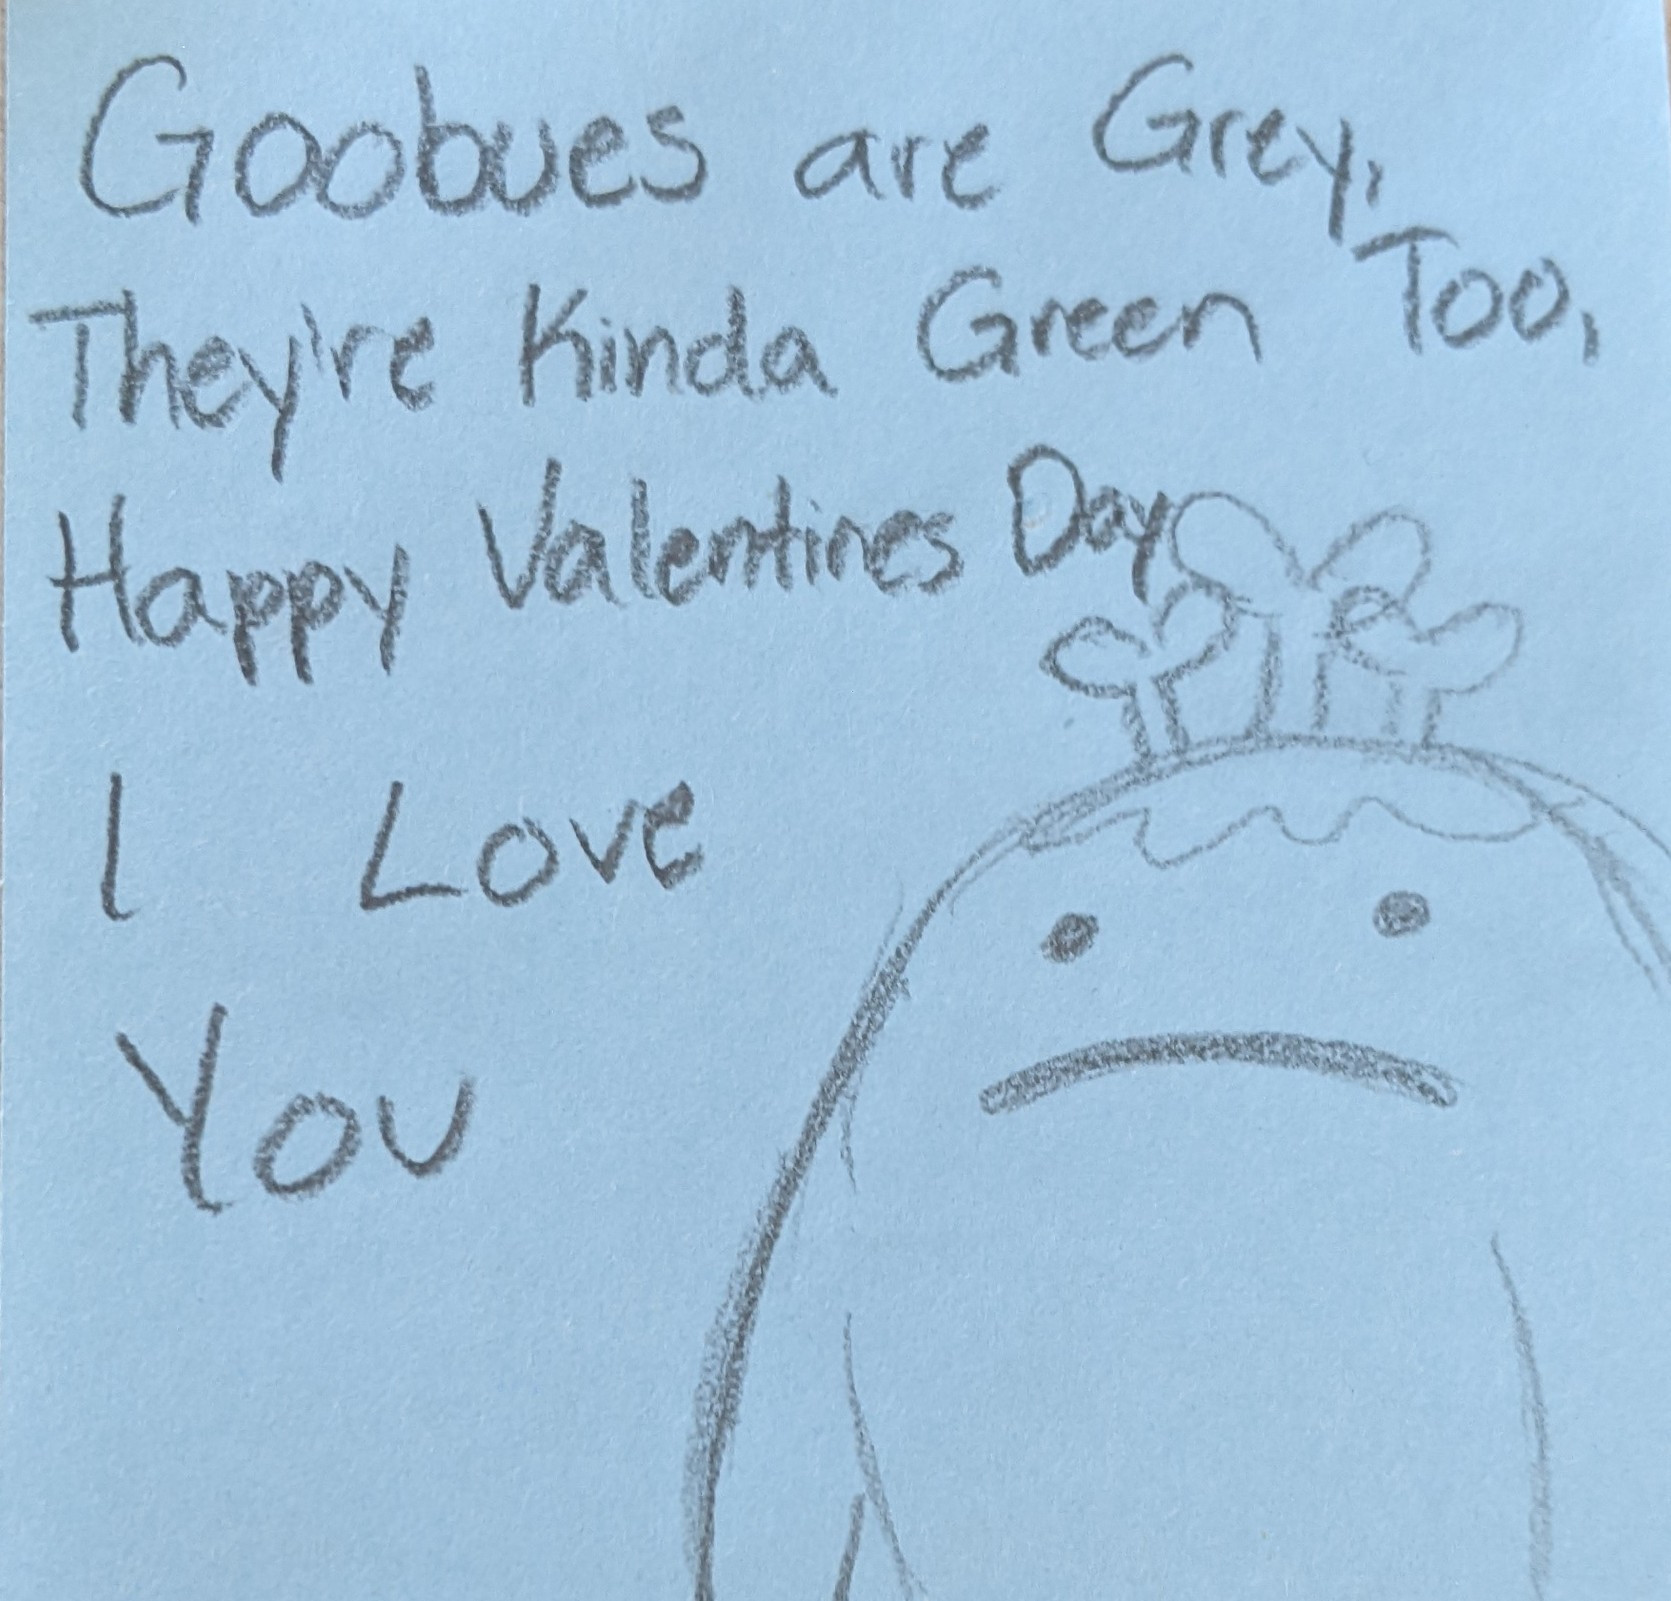 Goobues are Grey,
They're Kinda Green Too,
Happy Valentines Day
I Love
You